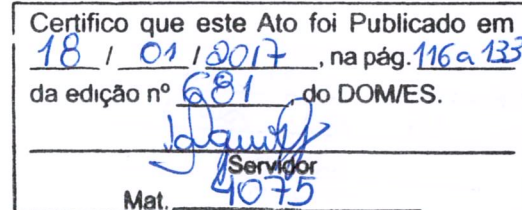 Certifico que este Ato foi Publicado em
18 / 01 / 2017, na pág. 116 a 133
da edição nº 681 do DOM/ES.
Servidor
Mat. 4075